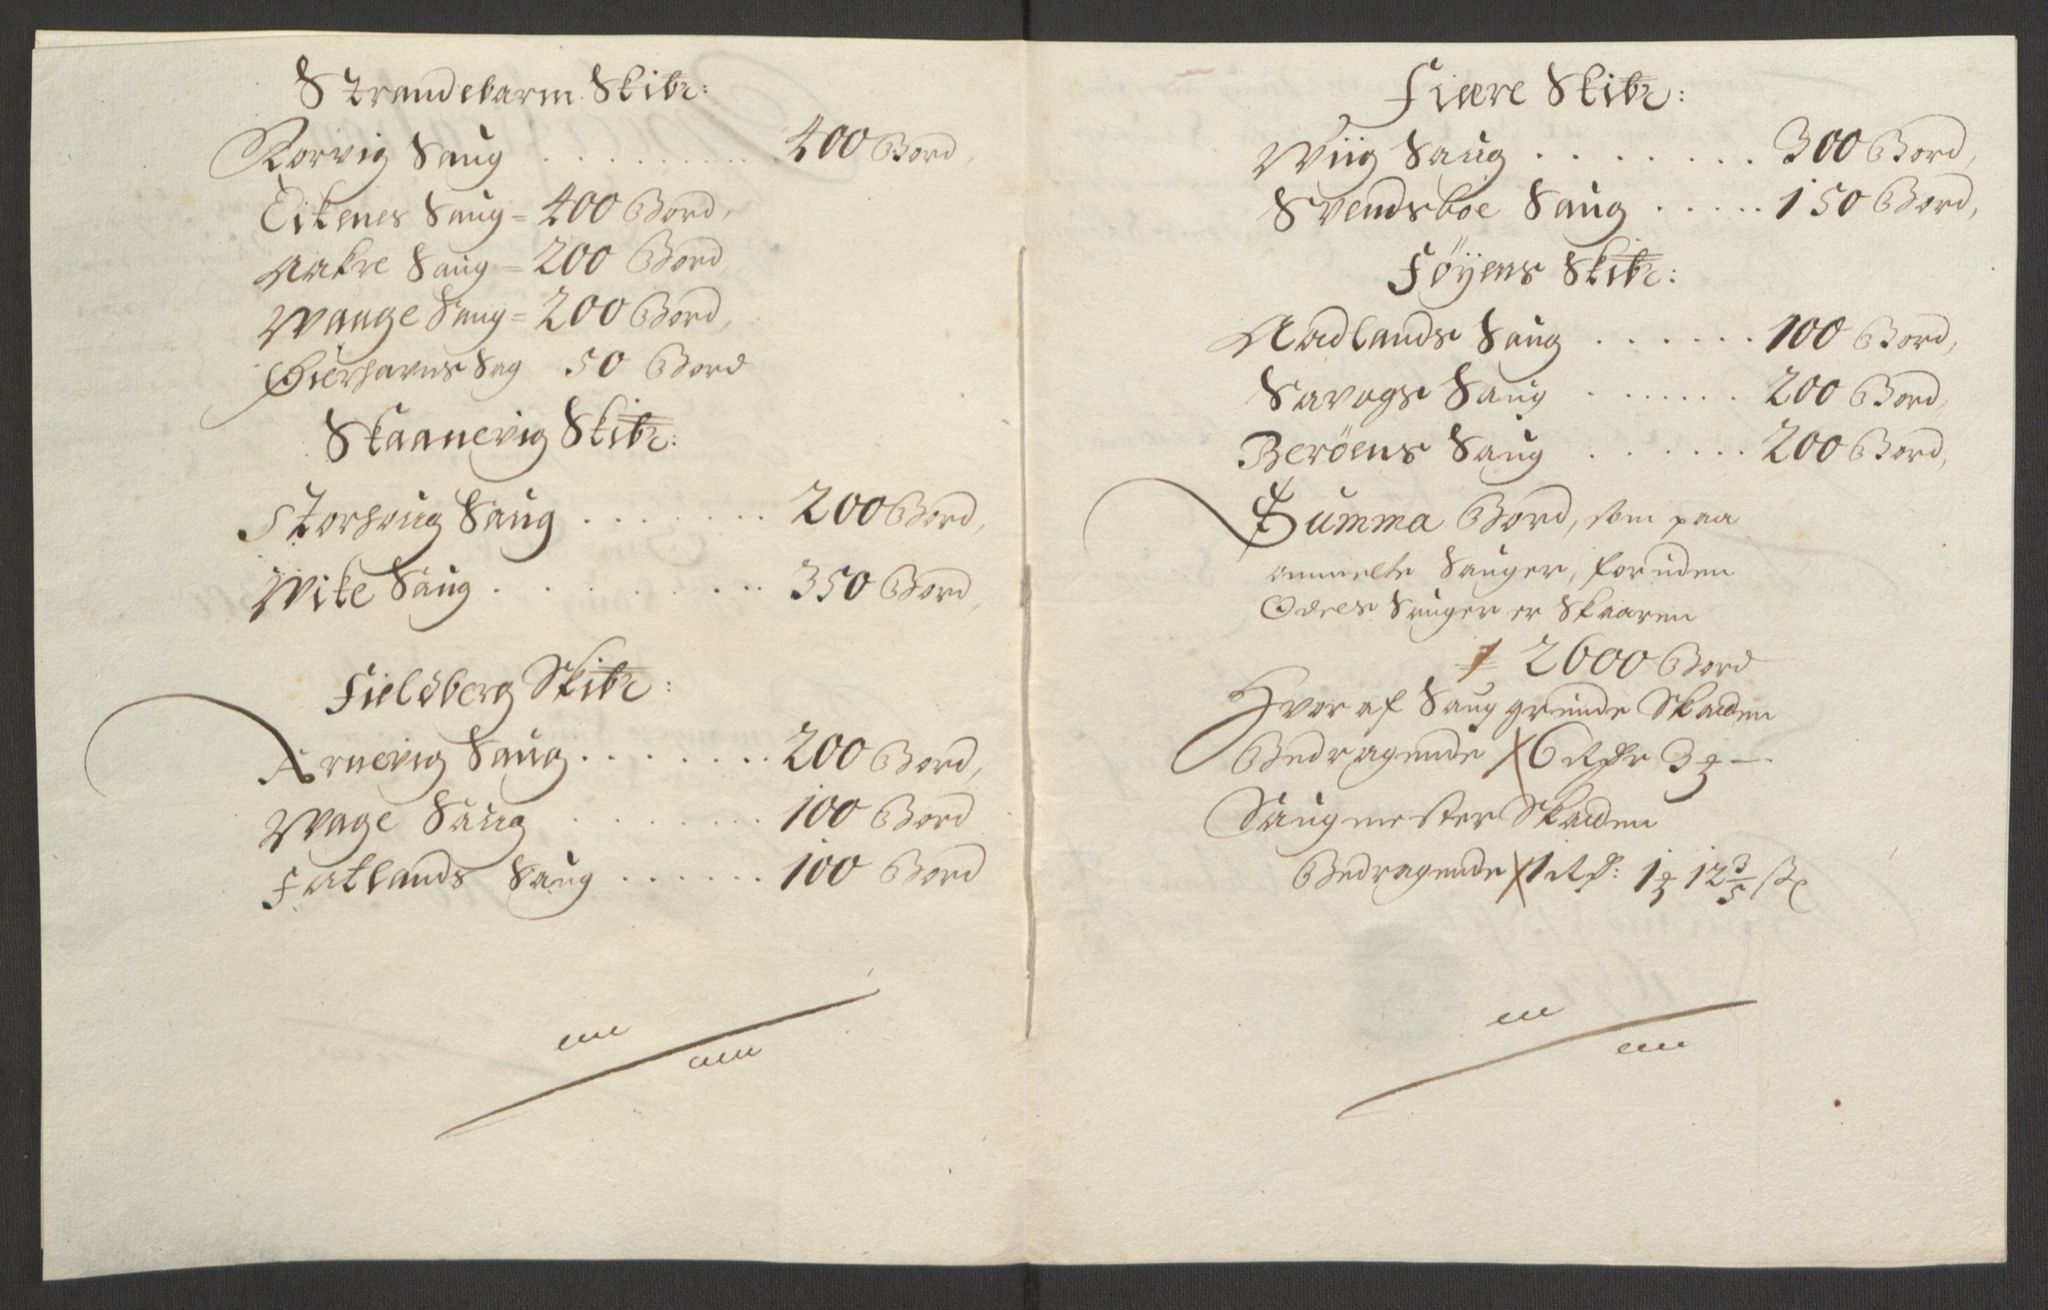 Strandebarm Skibr:
Rorvig Saug . . . . . . . . . 400 Bord,
Eikenes Saug = 400 Bord,
Aakre Saug = 200 Bord,
Waage Saug = 200 Bord,
Gierhavns Sag 50 Bord
Skaanevig Skibr:
Storhoug Saug . . . . . . . 200 Bord,
Wike Saug . . . . . . . . . 350 Bord,
Fieldberg Skibr:
Arnevig Saug . . . . . . . 200 Bord,
Wage Saug . . . . . . . 100 Bord
Fatlands Saug . . . . . . 100 Bord
Fiære Skibr:
Wiig Saug . . . . . . . 300 Bord,
Svendsboe Saug . . . . . 150 Bord,
Føyens Skibr:
Aadlands Saug . . . . . . 100 Bord,
Savogs Saug . . . . . . . 200 Bord,
Berøens Saug . . . . . . 200 Bord,
Summa Bord, som paa
ommelte Sauger, foruden
Odels Sauger er Skaaren
2600 Bord
Hvoraf Saug grunde Skatten
Bedragende 6 Rdr 3 —
Saugmester Skatten
Bedragende 1 Rd: 1 12 3/5 s